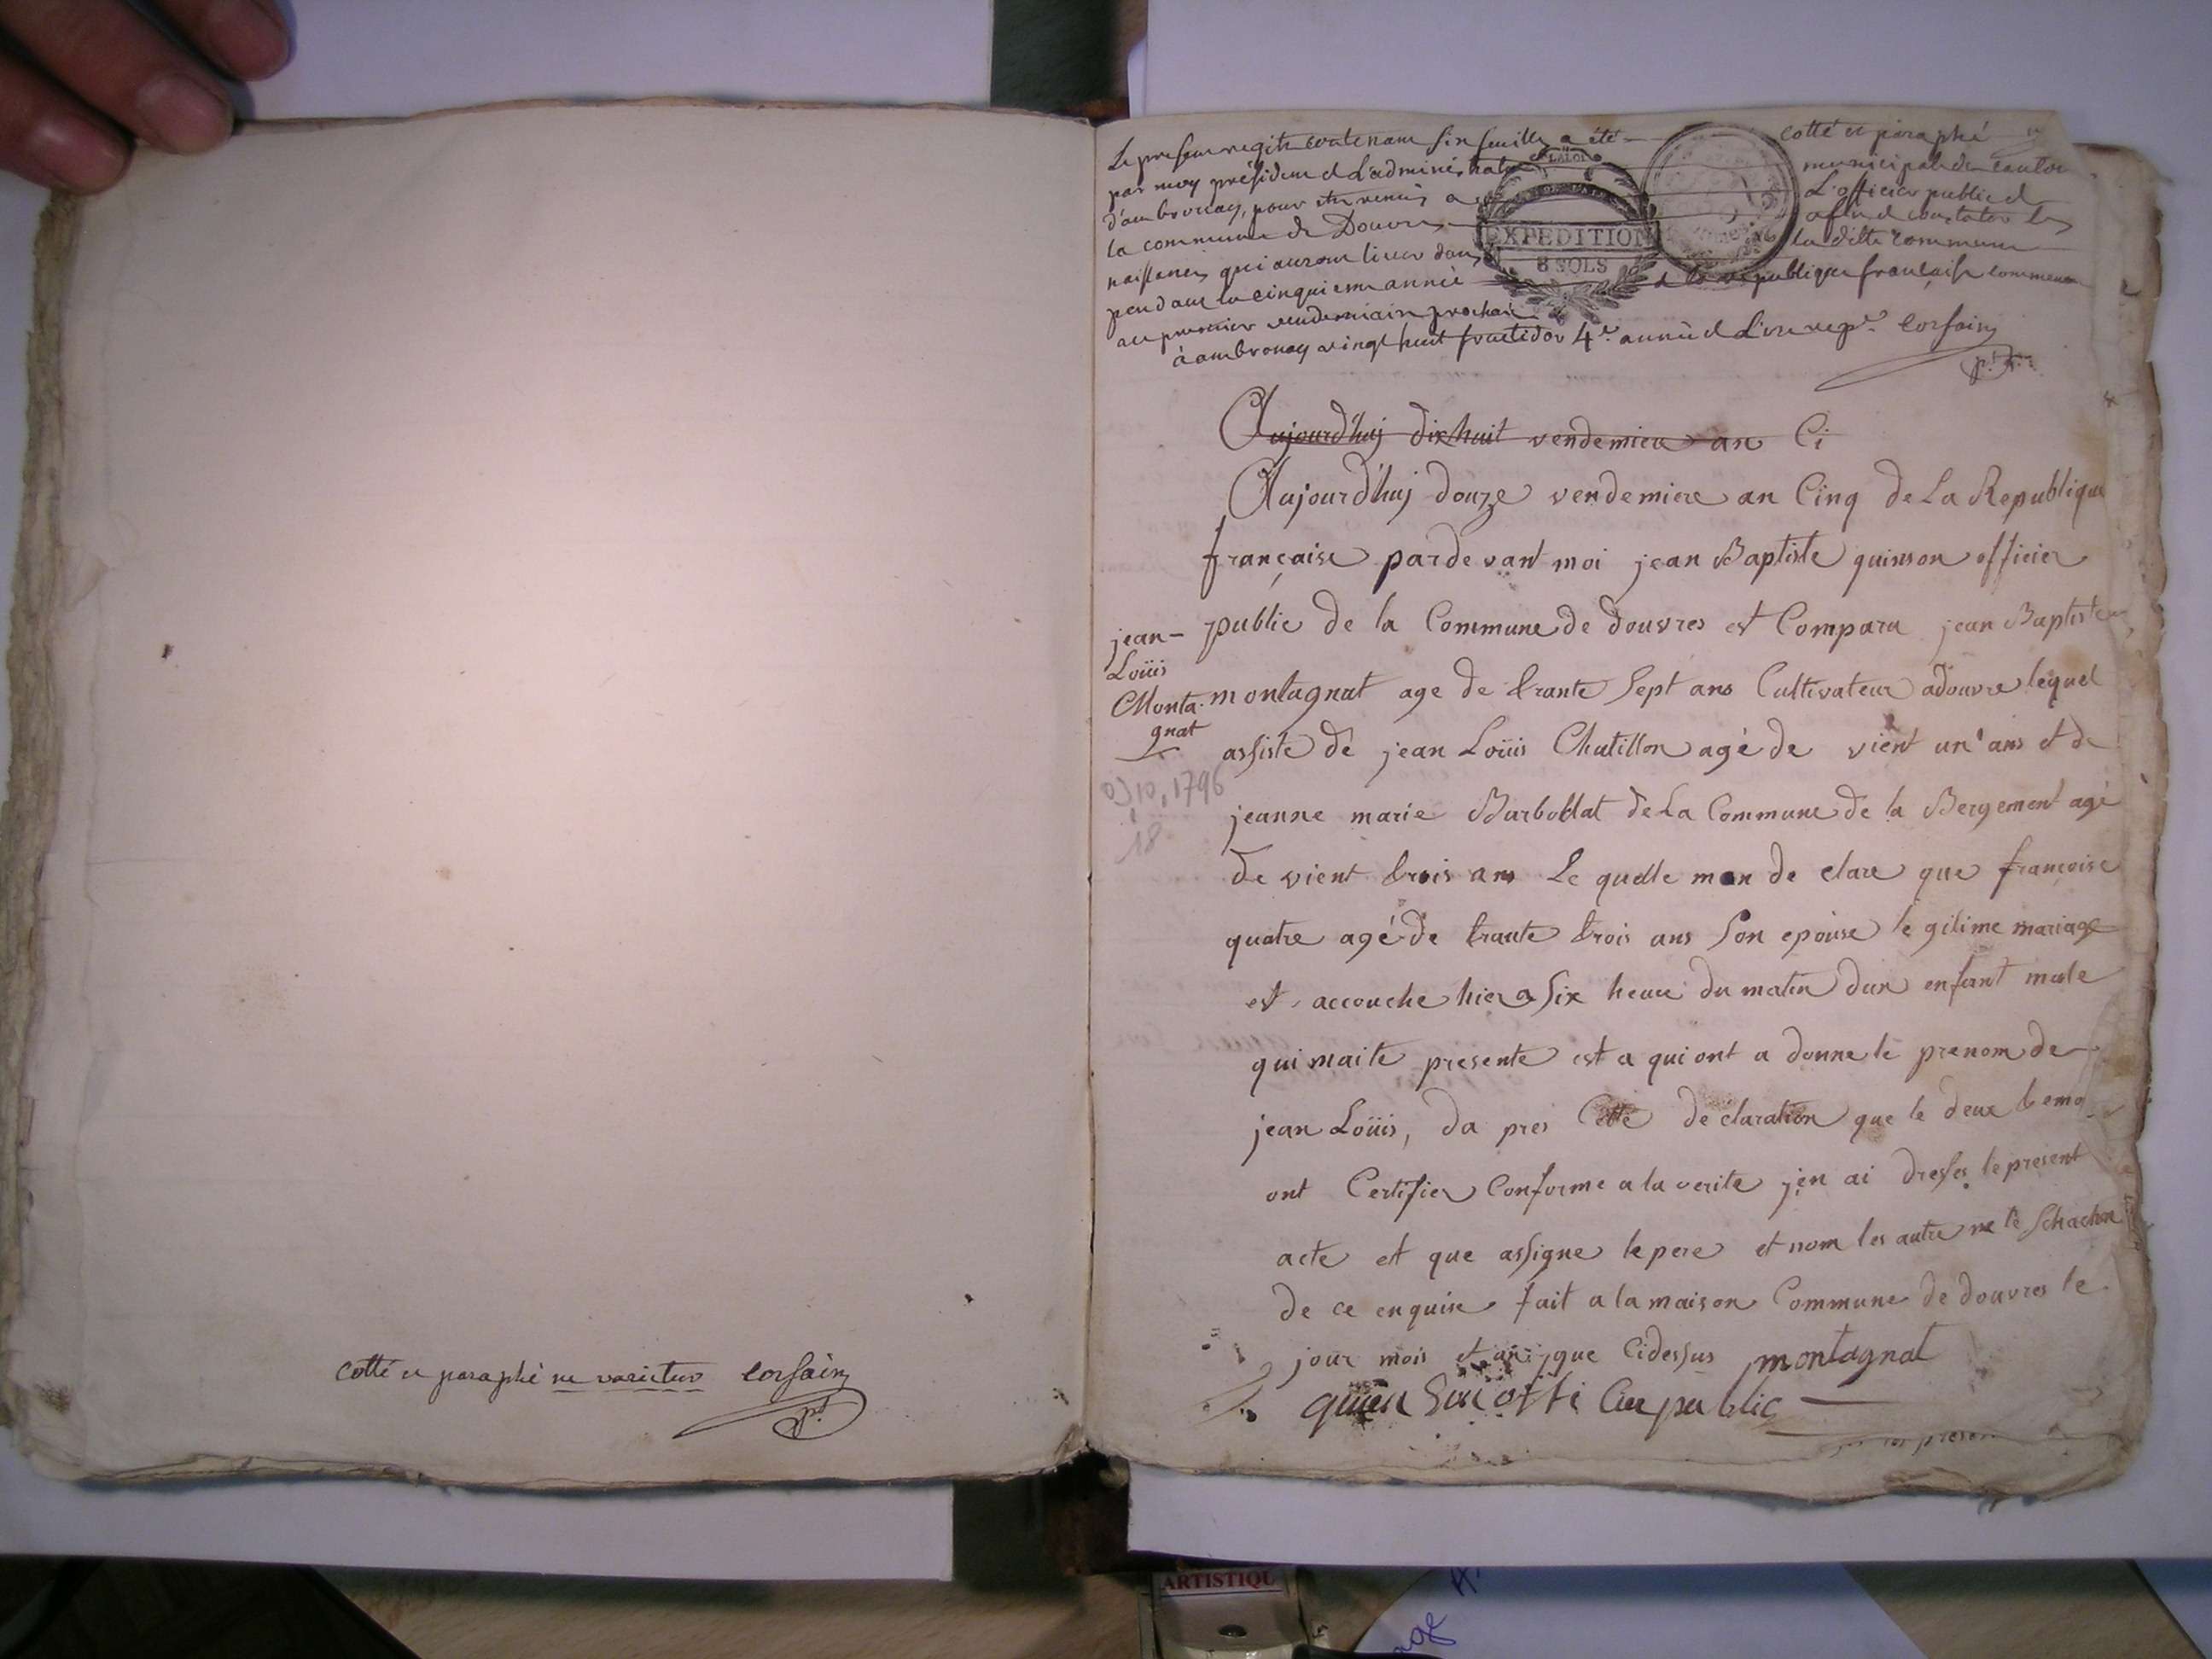 cotté et paraphé ne varietur Corsain
pt
Le present regitre contenant six feuilles a été cotté et paraphé
par moy président de L'administration municipale du canton
d'ambronay, pour etre remis a L'officier public de
la commune de Douvres afin de constater les
naissances qui auront lieu dans la ditte commune
pendant la cinquieme année de la republique française commencant
au premier vendemiaire prochain
à ambronay vingt huit fructidor 4e année de L'ere rep.e Corsain
LA LOI
EXPEDITION
8 SOLS
Aujourd'huj dixhuit vendemiere an Ci
Aujourd'huj douze vendemiere an Cinq de La Republique
française pardevant moi jean Baptiste quinson officier
public de la Commune de douvres est Comparu jean Baptiste
montagnat age de trante sept ans Cultivateur adouvre lequel
assiste de jean Loüis Chatillon agé de vient un ans et de
jeanne marie Barbollat de La Commune de la Bergement agé
de vient trois ans Le quelle mon de clare que francoise
quatre agé de trante trois ans son epouse le gitime mariage
est accouche hier a six heure du matin dun enfant male
qui maite presente est a qui ont a donne le prenom de
jean Loüis, da pres Cette de claration que le deux temo
ont Certifier Conforme a la verite jen ai dresses le present
acte et que assigne le pere et nom les autre ne le schachan
de ce enquire fait a la maison Commune de douvres le
jour mois et an que Cidessus montagnat
public
jean-
Loüis
Monta-
gnat
03,10,1796
18
ARTISTIQU